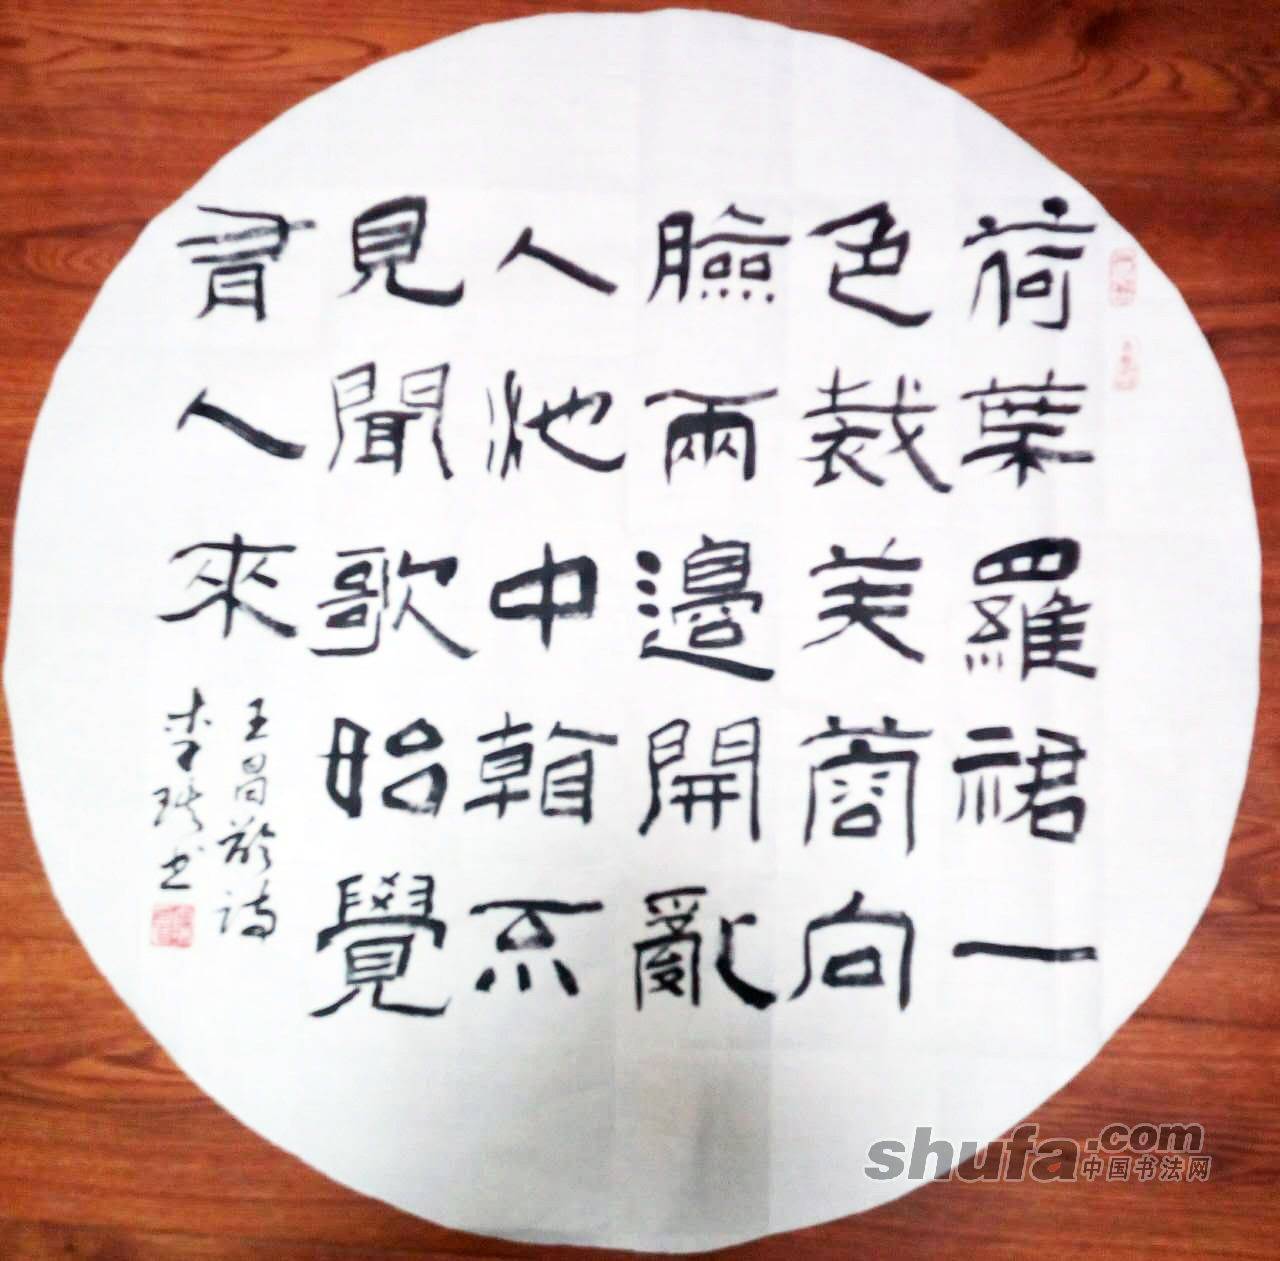 荷葉羅裙一
色裁芙蓉向
臉兩邊開亂
入池中看不
見聞歌始覺
有人來
王昌齡詩
李书
shufa.com
中国书法网